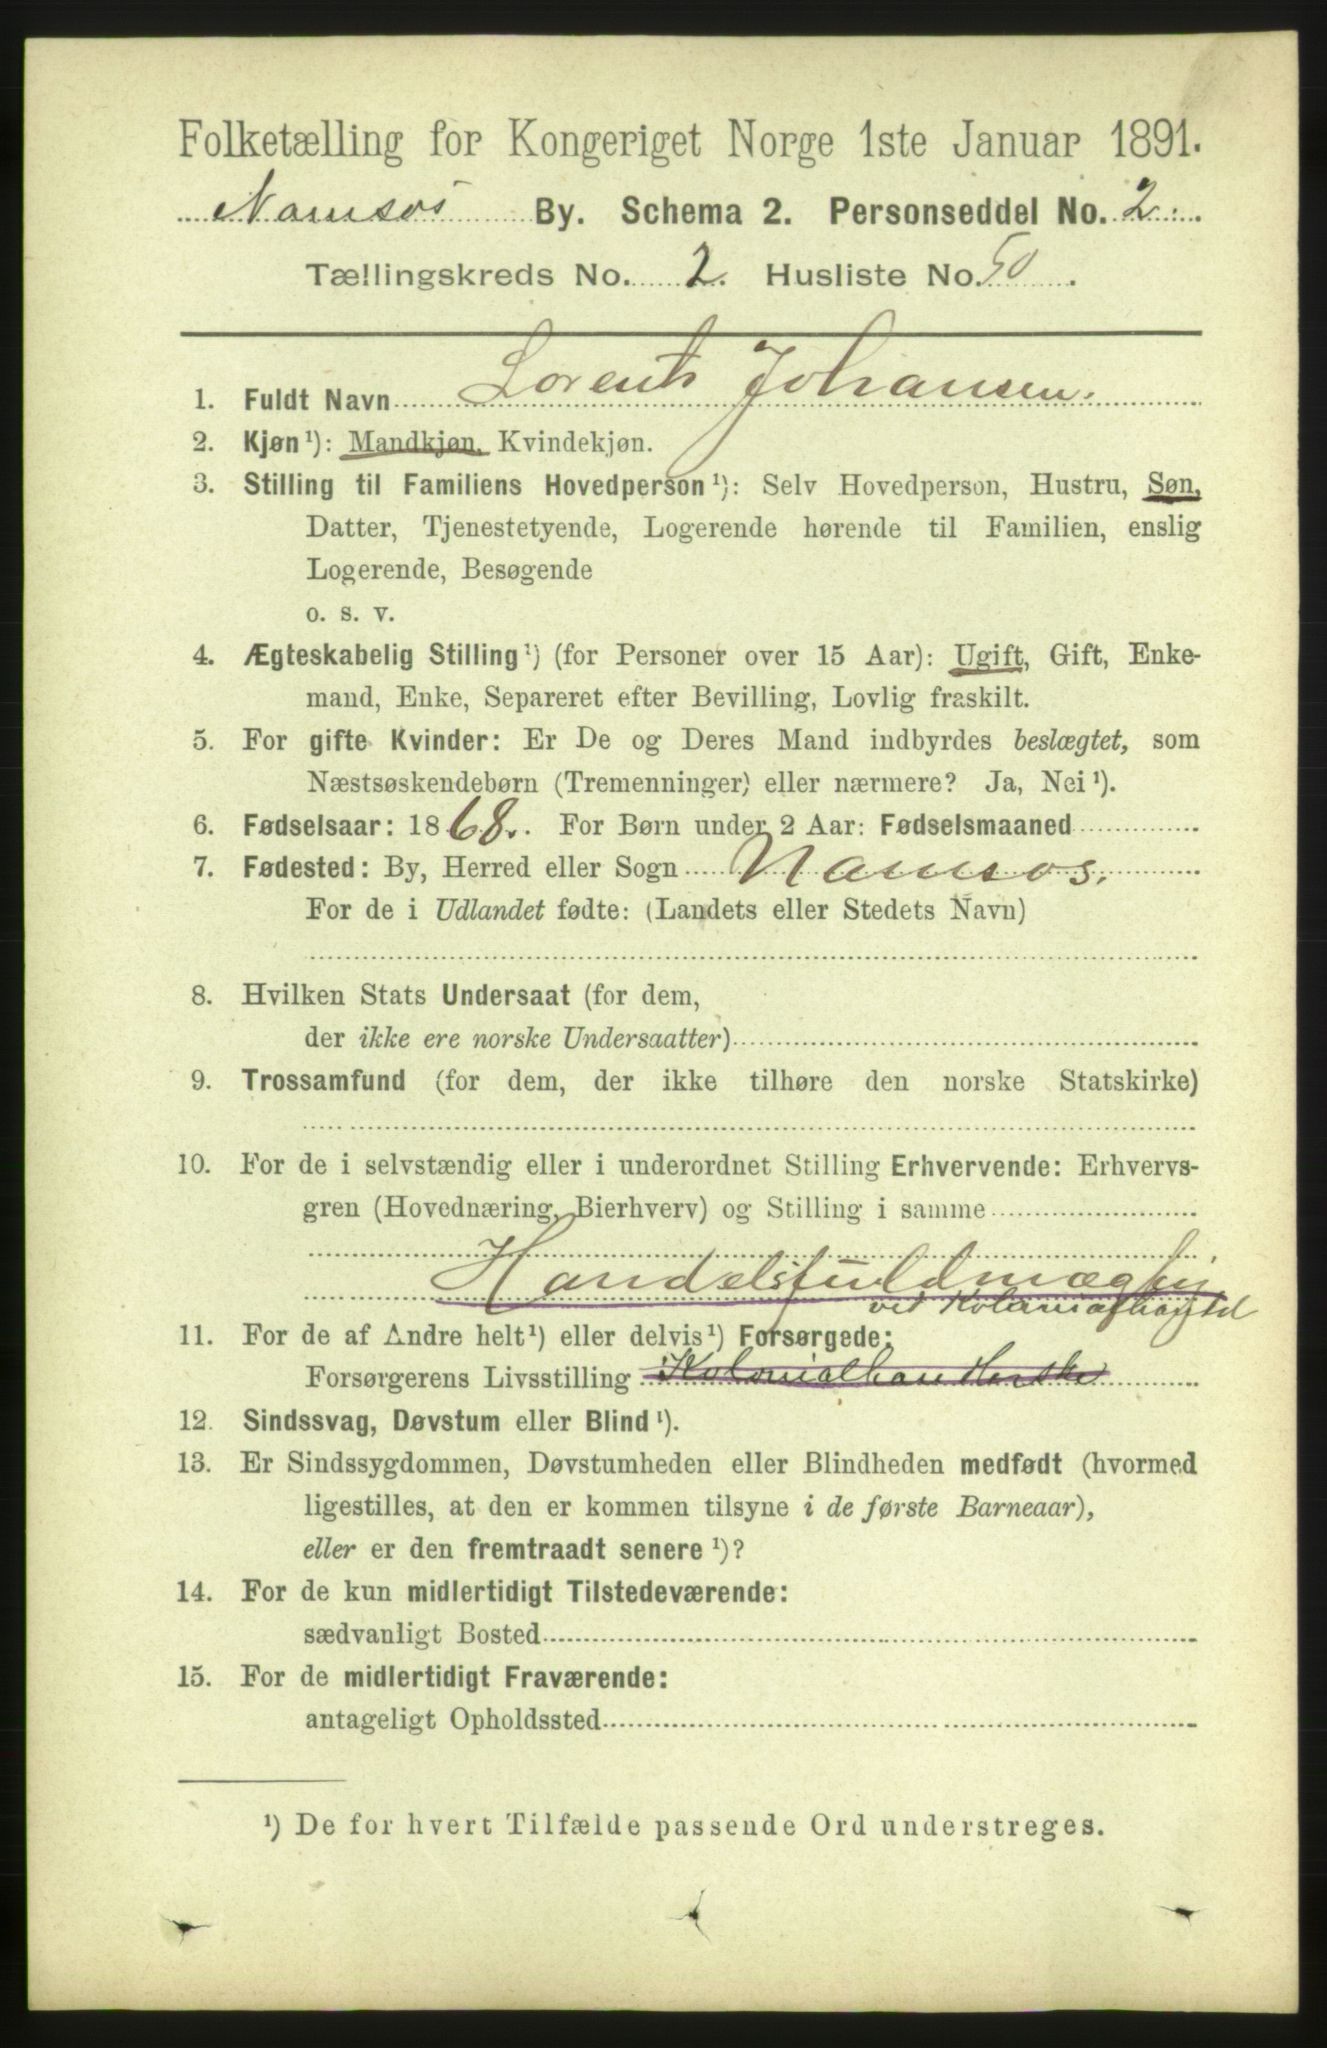 Folketælling for Kongeriget Norge 1ste Januar 1891.
Namsos By. Schema 2. Personseddel No. 2.
Tællingskreds No. 2. Husliste No. 50.
1. Fuldt Navn Lorents Johansen.
2. Kjøn¹): Mandkjøn, Kvindekjøn.
3. Stilling til Familiens Hovedperson¹): Selv Hovedperson, Hustru, Søn,
Datter, Tjenestetyende, Logerende hørende til Familien, enslig
Logerende, Besøgende
o. s. v.
4. Ægteskabelig Stilling¹) (for Personer over 15 Aar): Ugift, Gift, Enke-
mand, Enke, Separeret efter Bevilling, Lovlig fraskilt.
5. For gifte Kvinder: Er De og Deres Mand indbyrdes beslægtet, som
Næstsøskendebørn (Tremenninger) eller nærmere? Ja, Nei¹).
6. Fødselsaar: 1868. For Børn under 2 Aar: Fødselsmaaned
7. Fødested: By, Herred eller Sogn Namsos.
For de i Udlandet fødte: (Landets eller Stedets Navn)
8. Hvilken Stats Undersaat (for dem,
der ikke ere norske Undersaatter)
9. Trossamfund (for dem, der ikke tilhøre den norske Statskirke)
10. For de i selvstændig eller i underordnet Stilling Erhvervende: Erhvervs-
gren (Hovednæring, Bierhverv) og Stilling i samme
Handelsfuldmægtig
ved Kolonialhandel
11. For de af Andre helt¹) eller delvis¹) Forsørgede:
Forsørgerens Livsstilling
12. Sindssvag, Døvstum eller Blind¹).
13. Er Sindssygdommen, Døvstumheden eller Blindheden medfødt (hvormed
ligestilles, at den er kommen tilsyne i de første Barneaar),
eller er den fremtraadt senere¹)?
14. For de kun midlertidigt Tilstedeværende:
sædvanligt Bosted
15. For de midlertidigt Fraværende:
antageligt Opholdssted
¹) De for hvert Tilfælde passende Ord understreges.